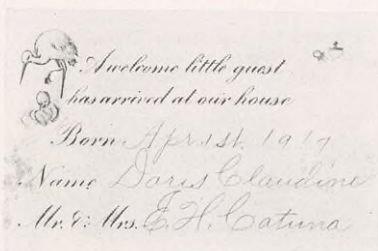 A welcome little guest
has arrived at our house
Born Apr. 1st. 1917
Name Doris Claudine
Mr. & Mrs. E. H. Catuna